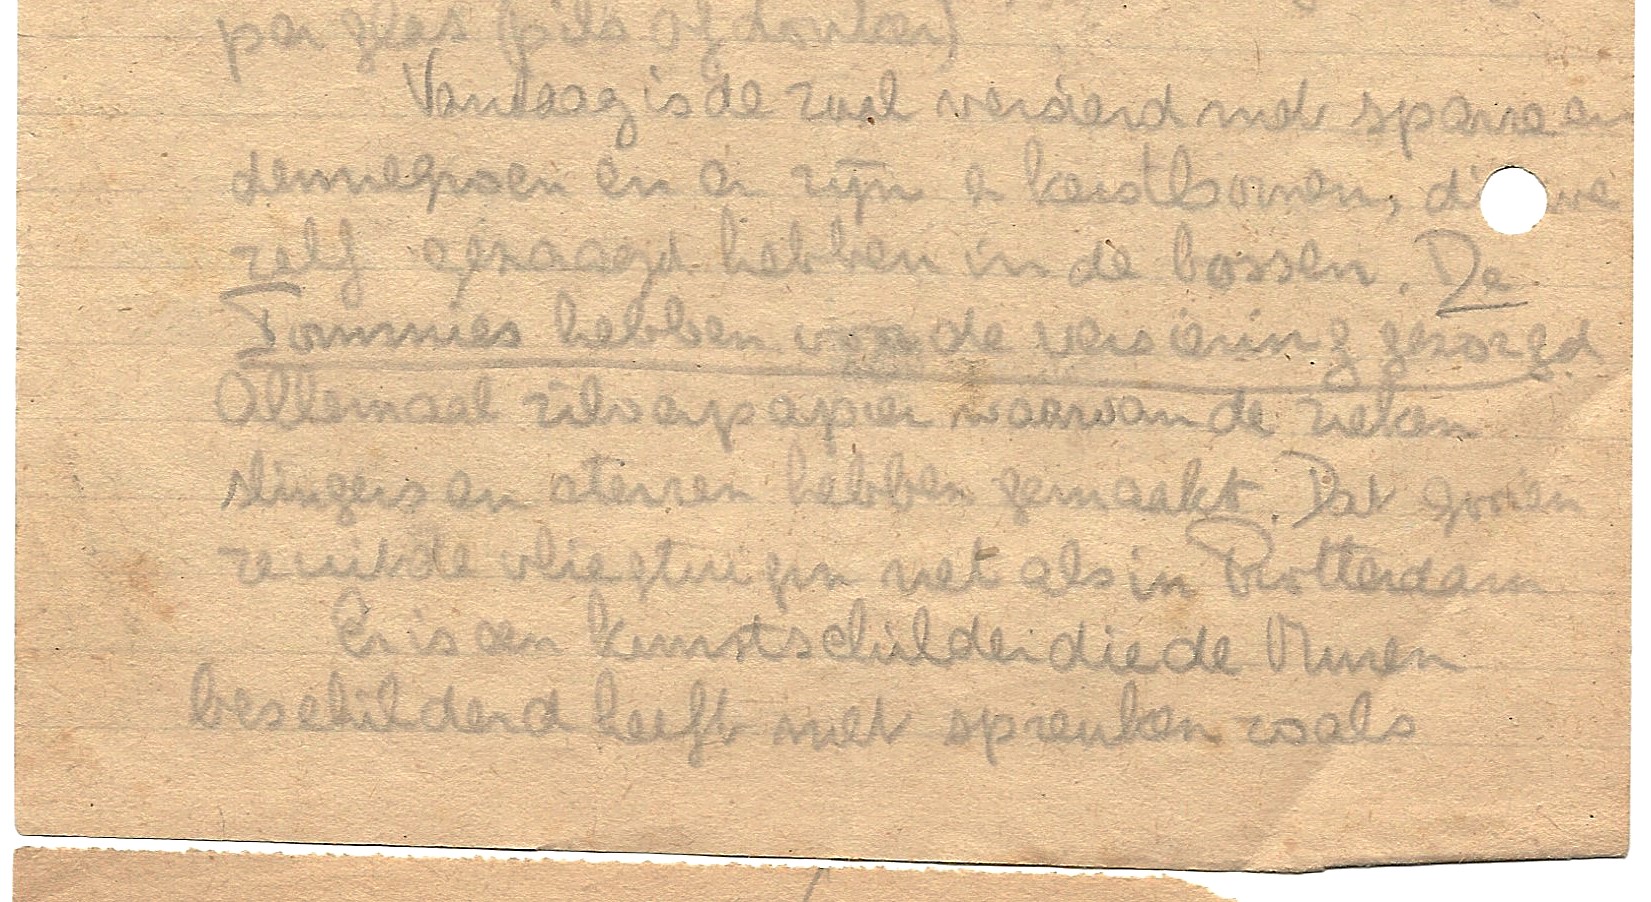 per glas (pils of donker)
Vandaag is de zaal versierd met sparre en
dennegroen en er zijn 2 kerstbomen, die we
zelf gezaagd hebben in de bossen. De
Tommies hebben voor de versiering gezorgd
Allemaal zilverpapier waarvan de zieken
slingers en sterren hebben gemaakt. Dat gooien
ze uit de vliegtuigen net als in Rotterdam
Er is een kunstschilder die de Muren
beschilderd heeft met spreuken zoals